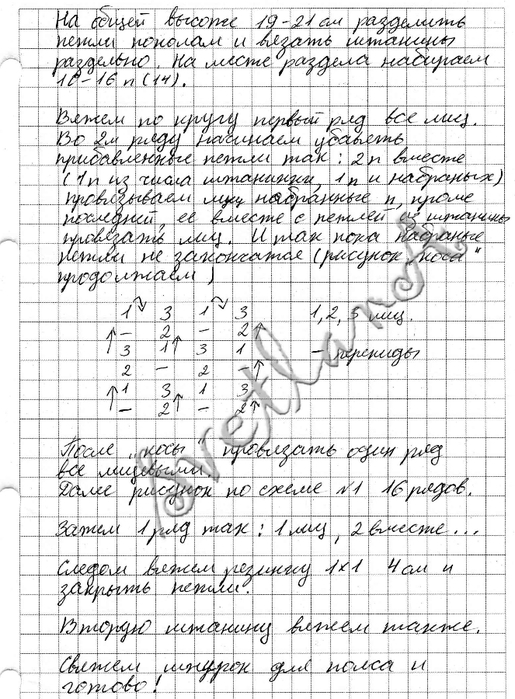 На общей высоте 19-21 см разделить
петли пополам и вязать штанины
раздельно. На месте раздела набираем
10-16 п (14).
Вяжем по кругу первый ряд все лиц.
Во 2м ряду начинаем убавлять
прибавленные петли так: 2 п вместе
(1 п из числа штанинки, 1 п и набраных)
провязываем лиц набранные п, кроме
последней, ее вместе с петлей из штанины
провязать лиц. И так пока набраные
петли не закончатся (рисунок „коса"
продолжаем)
1 3 1 3 1, 2, 3 лиц.
↑ - 2 - 2 ↑
3 1 ↑ 3 1 - перекиды
2 - 2 - ↑
↑ 1 3 1 3
- 2 ↑ - 2 ↑
После „косы" провязать один ряд
все лицевыми.
Далее рисунок по схеме №1 16 рядов.
Затем 1 ряд так: 1 лиц, 2 вместе...
Следом вяжем резинку 1х1 4 см и
закрыть петли.
Вторую штанину вяжем также.
Свяжем шнурок для пояса и
готово!
Svetlana